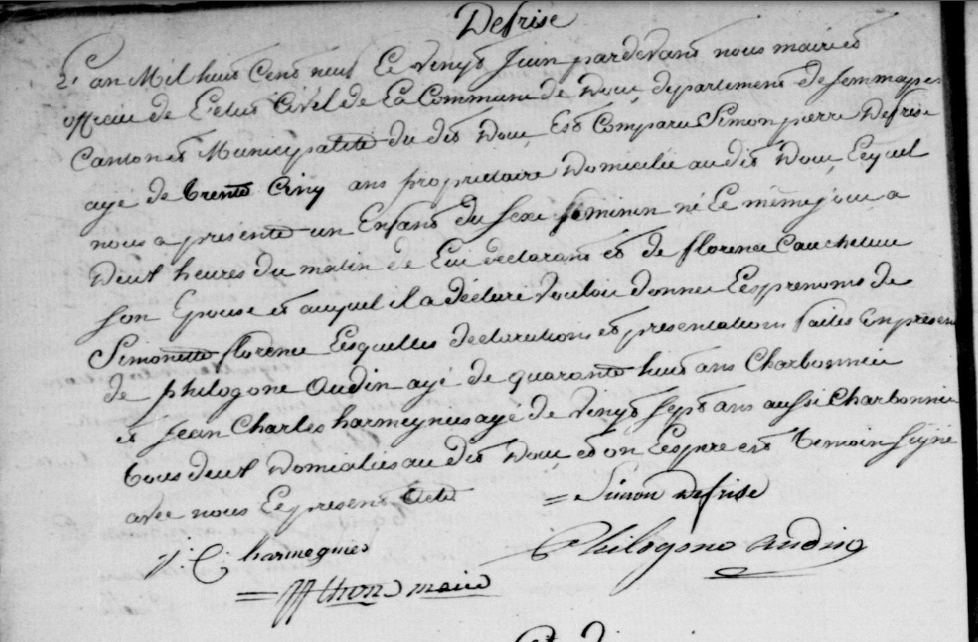 Defrise
L'an Mil huit Cent neuf Le vingt Juin pardevant nous maire et
officier de L'etat Civil de La Commune de Dour departement de Jemmappes
Canton et Municipalité du dit Dour Est Comparu Simon pierre Defrise
agé de trente Cinq ans proprietaire Domicilié au dit Dour Lequel
nous a presenté un Enfant du sexe feminin né Le même jour a
Deux heures du matin de Lui declarant et de florence Caucheteur
son Epouse et auquel il a déclaré vouloir donner Les prenoms de
Simonette florence Lesquelles declarations et presentations faites En presence
de philogone Audin agé de quarante huit ans Charbonnier
et Jean Charles harmegnies agé de vingt sept ans aussi Charbonnier
tous deux Domiciliés au dit Dour et on Les pre est temoin signé
avec nous Le present acte = Simon Defrise
J: C: harmegnies Philogone audin
= maire